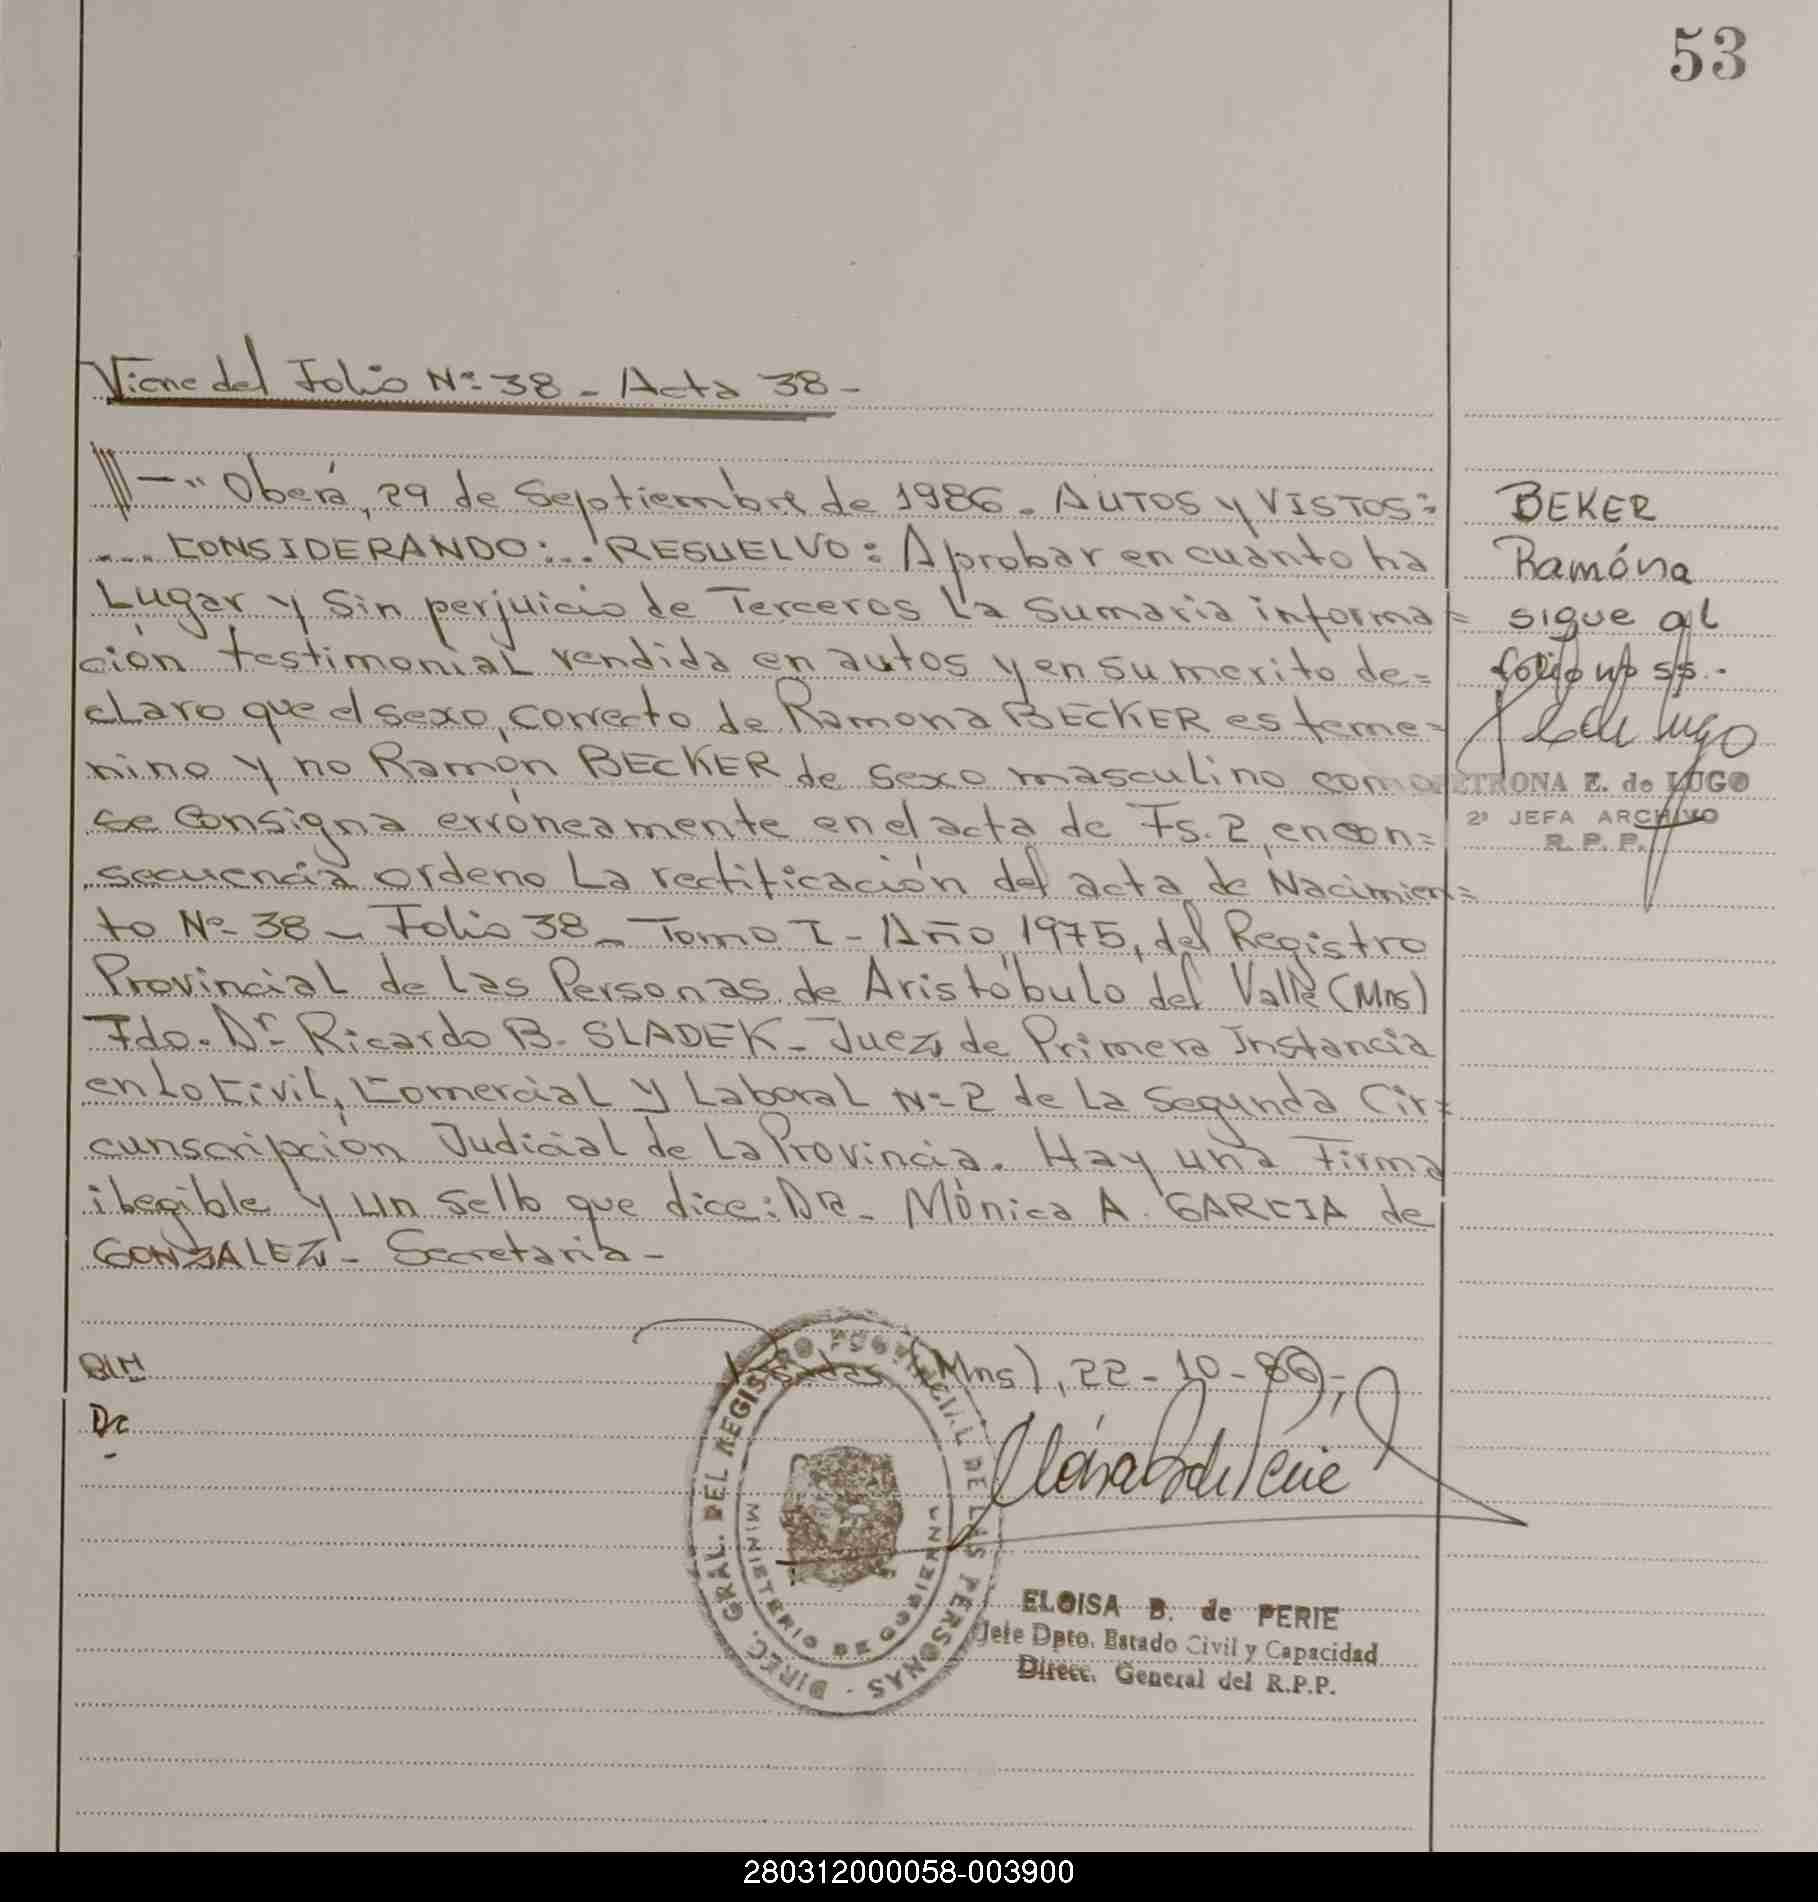 53
Viene del Folio Nº 38 - Acta 38 -
-" Oberá, 29 de Septiembre de 1986. AUTOS y VISTOS:
.... CONSIDERANDO:... RESUELVO: Aprobar en cuanto ha
Lugar y sin perjuicio de Terceros La Sumaria informa=
ción testimonial rendida en autos y en su merito de=
claro que el sexo correcto de Ramona BECKER es feme=
nino y no Ramón BECKER de sexo masculino como
se consigna erróneamente en el acta de Fs. 2, en con=
secuencia ordeno La rectificación del acta de Nacimien=
to Nº 38 - Folio 38 - Tomo I - Año 1975, del Registro
Provincial de las Personas de Aristóbulo del Valle (Mns)
Fdo. Dr. Ricardo B. SLADEK - Juez de Primera Instancia
en Lo Civil, Comercial y Laboral Nº 2 de La Segunda Cir=
cunscripción Judicial de La Provincia. Hay una Firma
ilegible y un sello que dice: Dra. Mónica A. GARCIA de
GONZALEZ - Secretaria -
BEKER
Ramóna
sigue al
folio nº 55.-
PETRONA Z. de LUGO
2ª JEFA ARCHIVO
R. P. P.
Posadas (Mns), 22-10-86,-
DIREC. GRAL. DEL REGISTRO PROVINCIAL DE LAS PERSONAS -
MINISTERIO DE GOBIERNO
ELOISA B. de PERIE
Jefe Dpto. Estado Civil y Capacidad
Direcc. General del R.P.P.
280312000058-003900